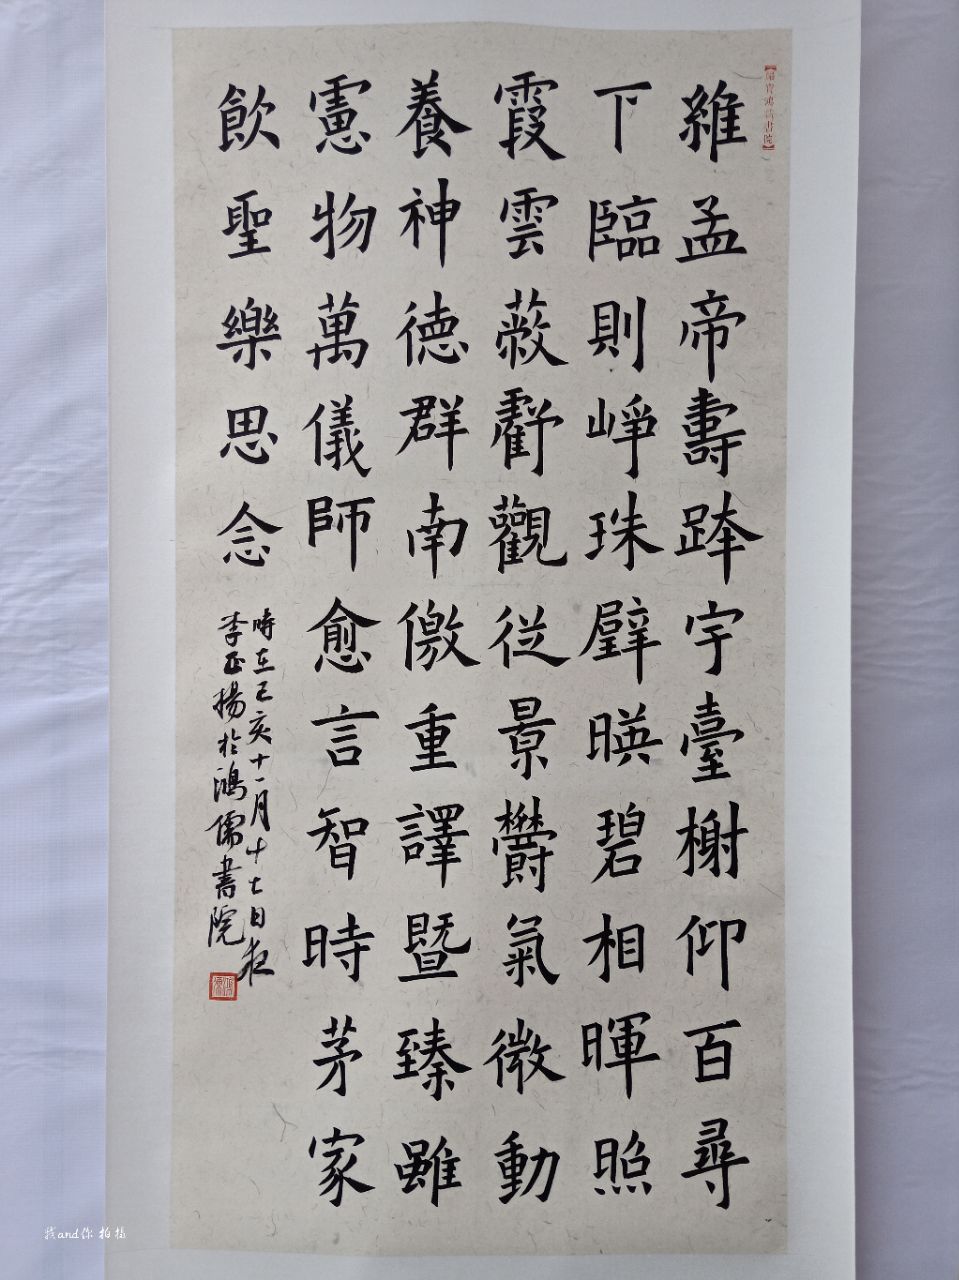 雒孟帝壽跸宇臺榭仰百尋
下臨則崢珠壁暎碧相暉照
霞雲蔽虧觀從景欝氣微動
養神德群南儌重譯暨臻雖
憲物萬儀師愈言智時茅家
飲聖樂思念
時在己亥十一月廿七日夜
李正揚於鴻儒書院
我and你 拍摄